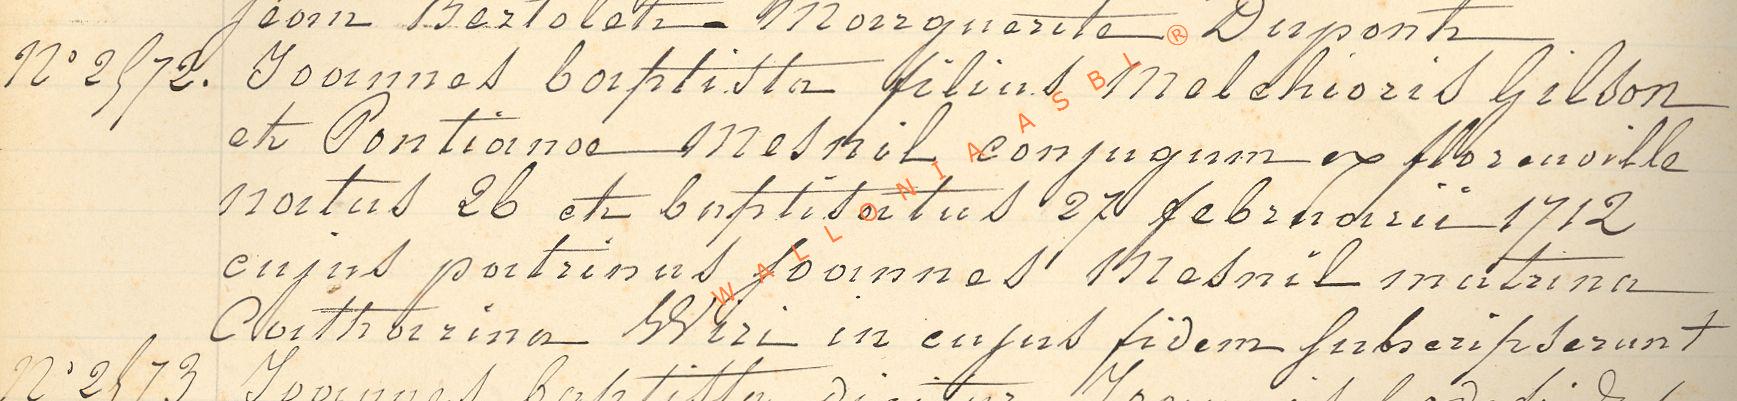 Jean Bertoleth Marguerite Dupont
N° 2572. Joannes baptista filius Melchioris Gilson
et Pontianae Mesnil conjugum ex florenville
natus 26 et baptisatus 27 februarii 1712
cujus patrinus Joannes Mesnil matrina
Catharina Wiri in cujus fidem subscripserunt
N° 2573 Joannes baptista
WALLONIA ASBL ®